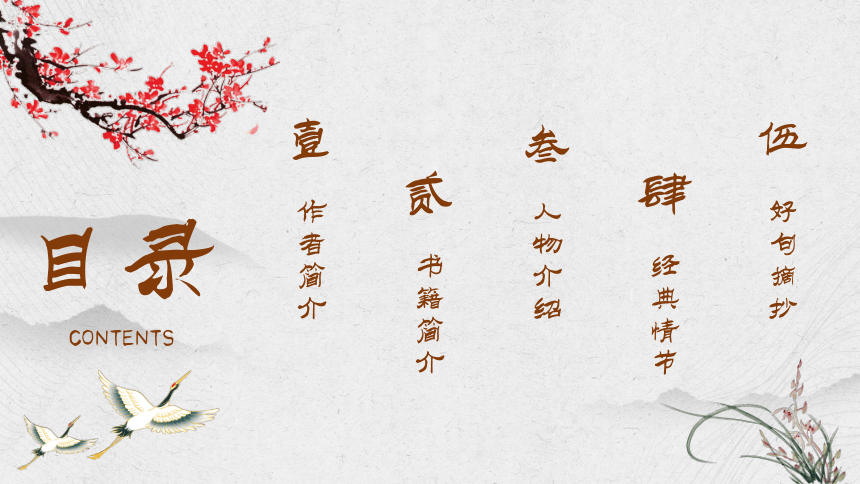 目录
CONTENTS
壹
作者简介
贰
书籍简介
叁
人物介绍
肆
经典情节
伍
好句摘抄